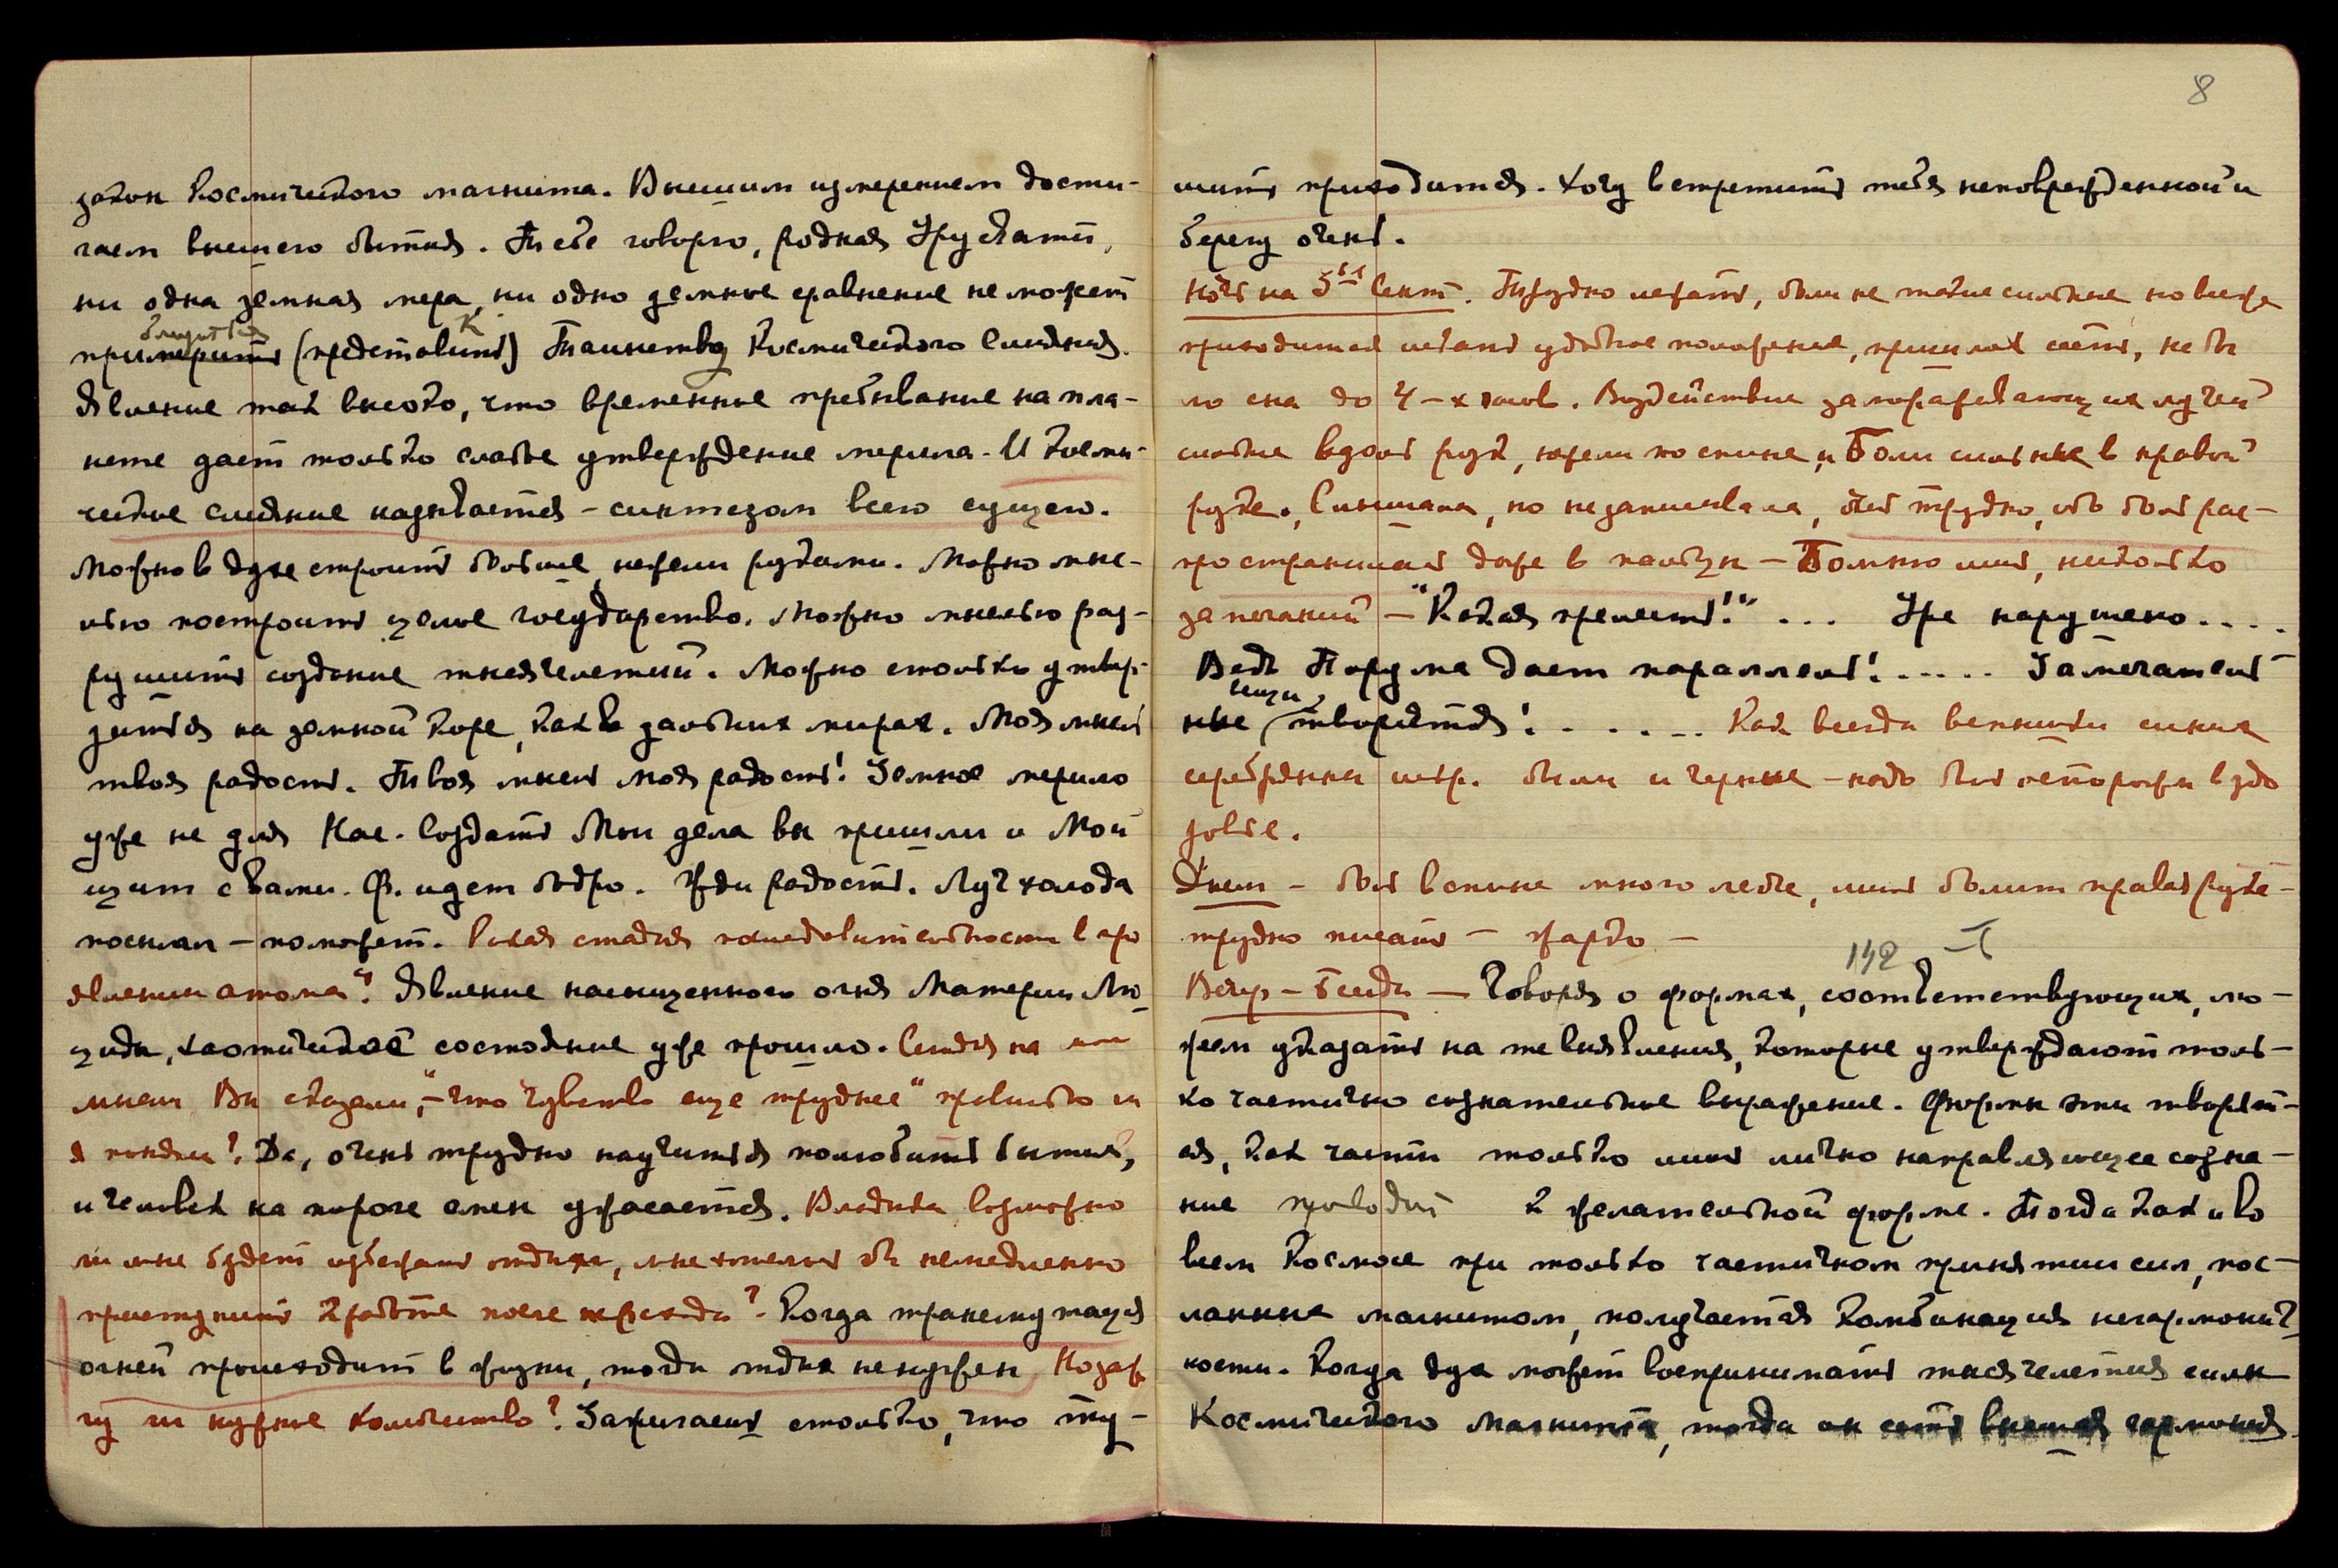 закон Космического магнита. Высшим измерением дости-
гаем высшего бытия. Тебе говорю, родная Урусвати,
ни одна земная мера, ни одно земное сравнение не может
близиться к
примерить (представить) Таинству Космического Слияния.
Явление так высоко, что временное пребывание на пла-
нете дает только слабое утверждение мерила. И косми-
ческое слияние называется – синтезом всего сущего.
Можно в духе строить больше, нежели руками. Можно мыс-
лью построить целое государство. Можно мыслью раз-
рушить создание тысячелетий. Можно столько утвер-
диться на земной коре, как в дальних мирах. Моя мысль
твоя радость. Твоя мысль моя радость! Земное мерило
уже не для Нас. Создать Мои дела вы пришли и Мой
щит с вами. Ф. идет бодро. Жди радость. Луч холода
послал – поможет. Какая стадия последовательности в про
явлении атома? Явление насыщенного огня Материи Лю
циды, хаотическое состояние уже прошло. Слияния на
мысли Вы сказали, – "что чувство еще труднее" правильно ли
я поняла? Да, очень трудно научиться полюбить бытие,
и человек на пороге смен ужасается. Владыка возможно
ли мне будет избежать отдыха, мне хотелось бы немедленно
приступить к работе после переезда? Когда трансмутация
огней происходит в жизни, тогда отдых не нужен. Возж
гу ли нужное количество? Зажигаешь столько, что ту-
8
шить приходится. Хочу встретить тебя неповрежденной и
берегу очень.
Ночь на 5ое Сент. Трудно лежать, боли не такие сильные но все же
приходится искать удобное положение, пришлось сесть, не бы
ло сна до 4-х часов. Воздействие замораживающих лучей
слабые вдоль рук, нежели по спине, и Боли сильные в правой
руке. Слышала, но не записывала, было трудно, ибо боль рас-
пространилась даже в пальцы – Помню лишь, несколько
замечаний – "Какая прелесть!" ... Уже нарушено....
Ведь Порумс дает параллель!...... Замечатель
ные вещи творятся!....... Как всегда вспышки синих
серебряных искр. были и черные – надо быть осторожн в здо
ровье.
Днем – боль в спине много легче, лишь болит правая рука –
трудно писать – жарко –
142
Вечер – Беседа – Говоря о формах, соответствующих, мо-
жем указать на те выявления, которые утверждают толь-
ко частично сознательное выражение. Формы эти творят-
ся, как части только лишь лично направляющее созна-
ние приводит к желательной форме. Тогда как и во
всем Космосе при только частичном принятии сил, пос-
ланных магнитом, получается комбинация негармонич-
ности. Когда дух может воспринимать тысячелетия силы
Космического Магнита, тогда он есть высшая гармония.